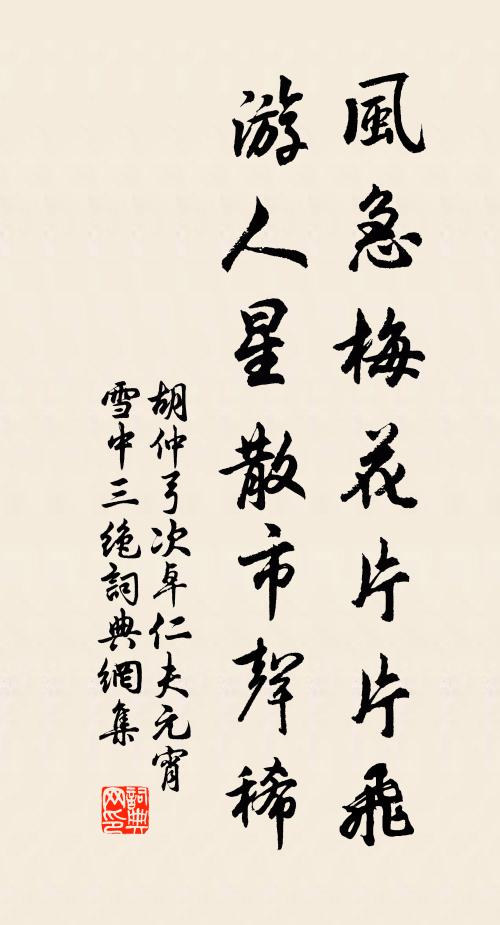 風急梅花片片飛
游人星散市聲稀
胡仲弓次卓仁夫元宵
雪中三絶詞典網集
詞典
网印